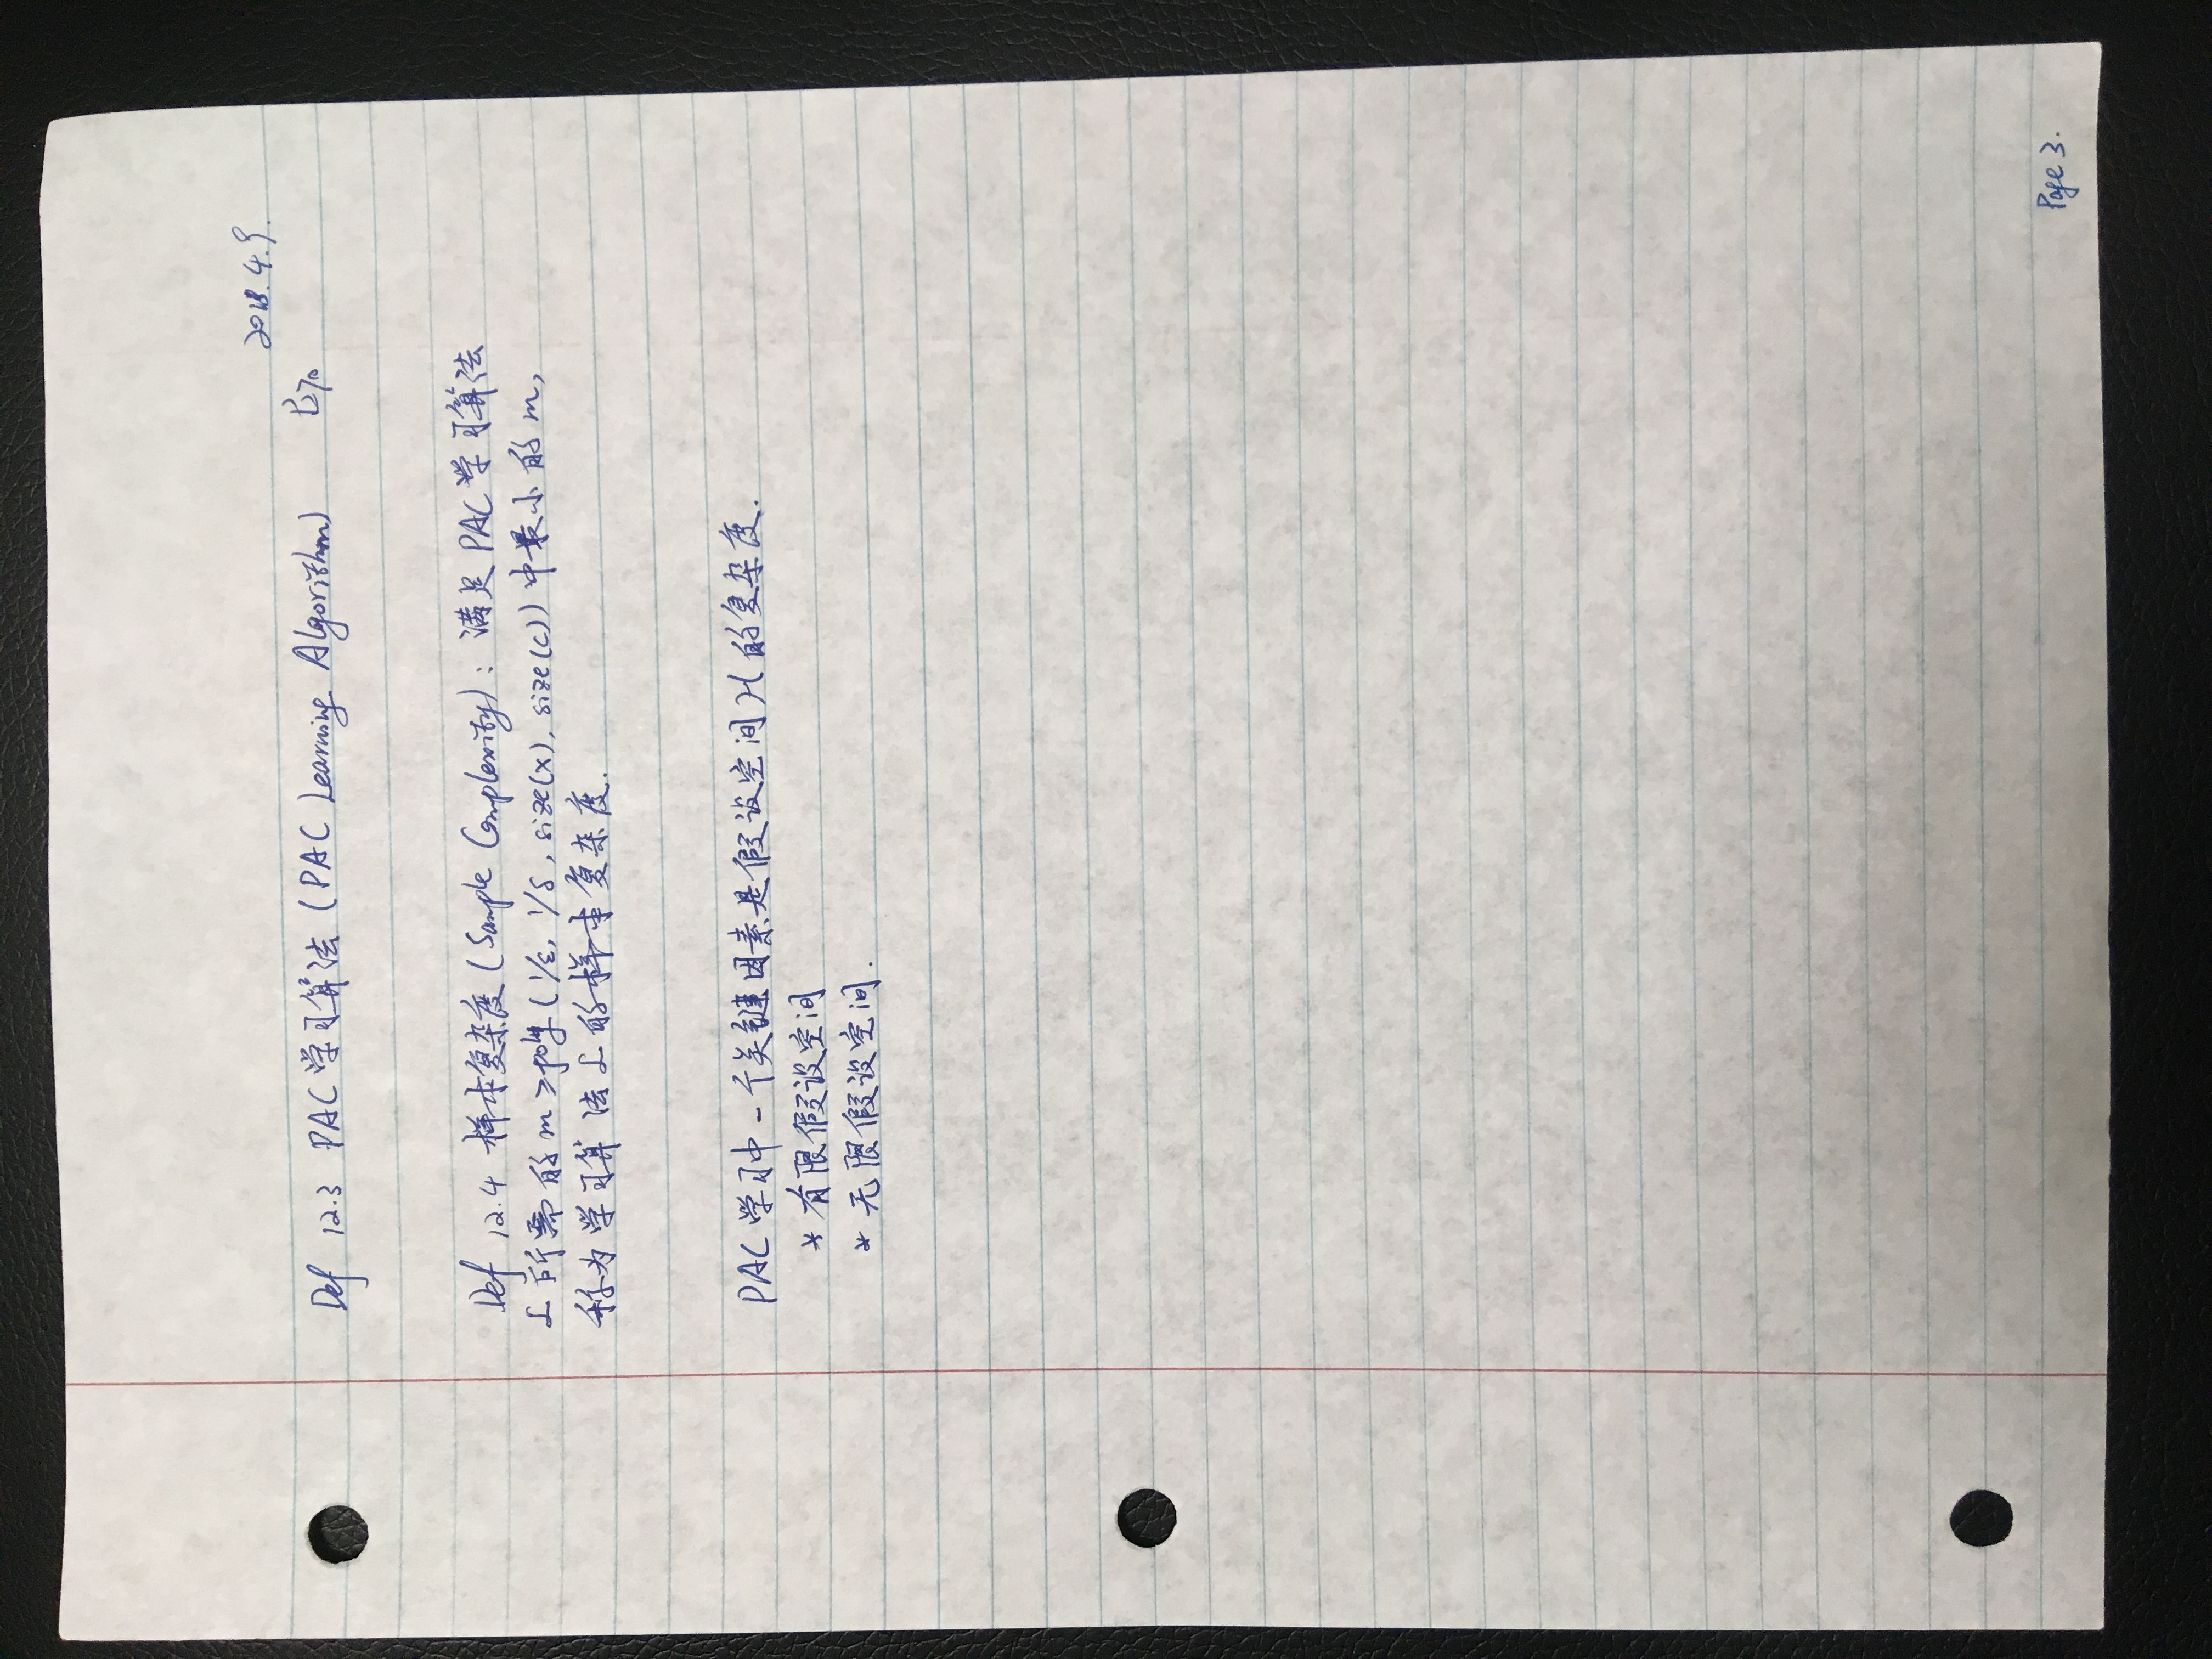 2018.4.9.
Def 12.3 PAC学习算法 (PAC Learning Algorithm) P270
Def 12.4 样本复杂度 (Sample Complexity): 满足PAC学习算法
𝓛所需的 m ≥ poly (1/ε, 1/δ, size(x), size(c)) 中最小的 m,
称为学习算法𝓛的样本复杂度.
PAC学习中一个关键因素是假设空间 𝓗 的复杂度.
* 有限假设空间
* 无限假设空间.
Page 3.